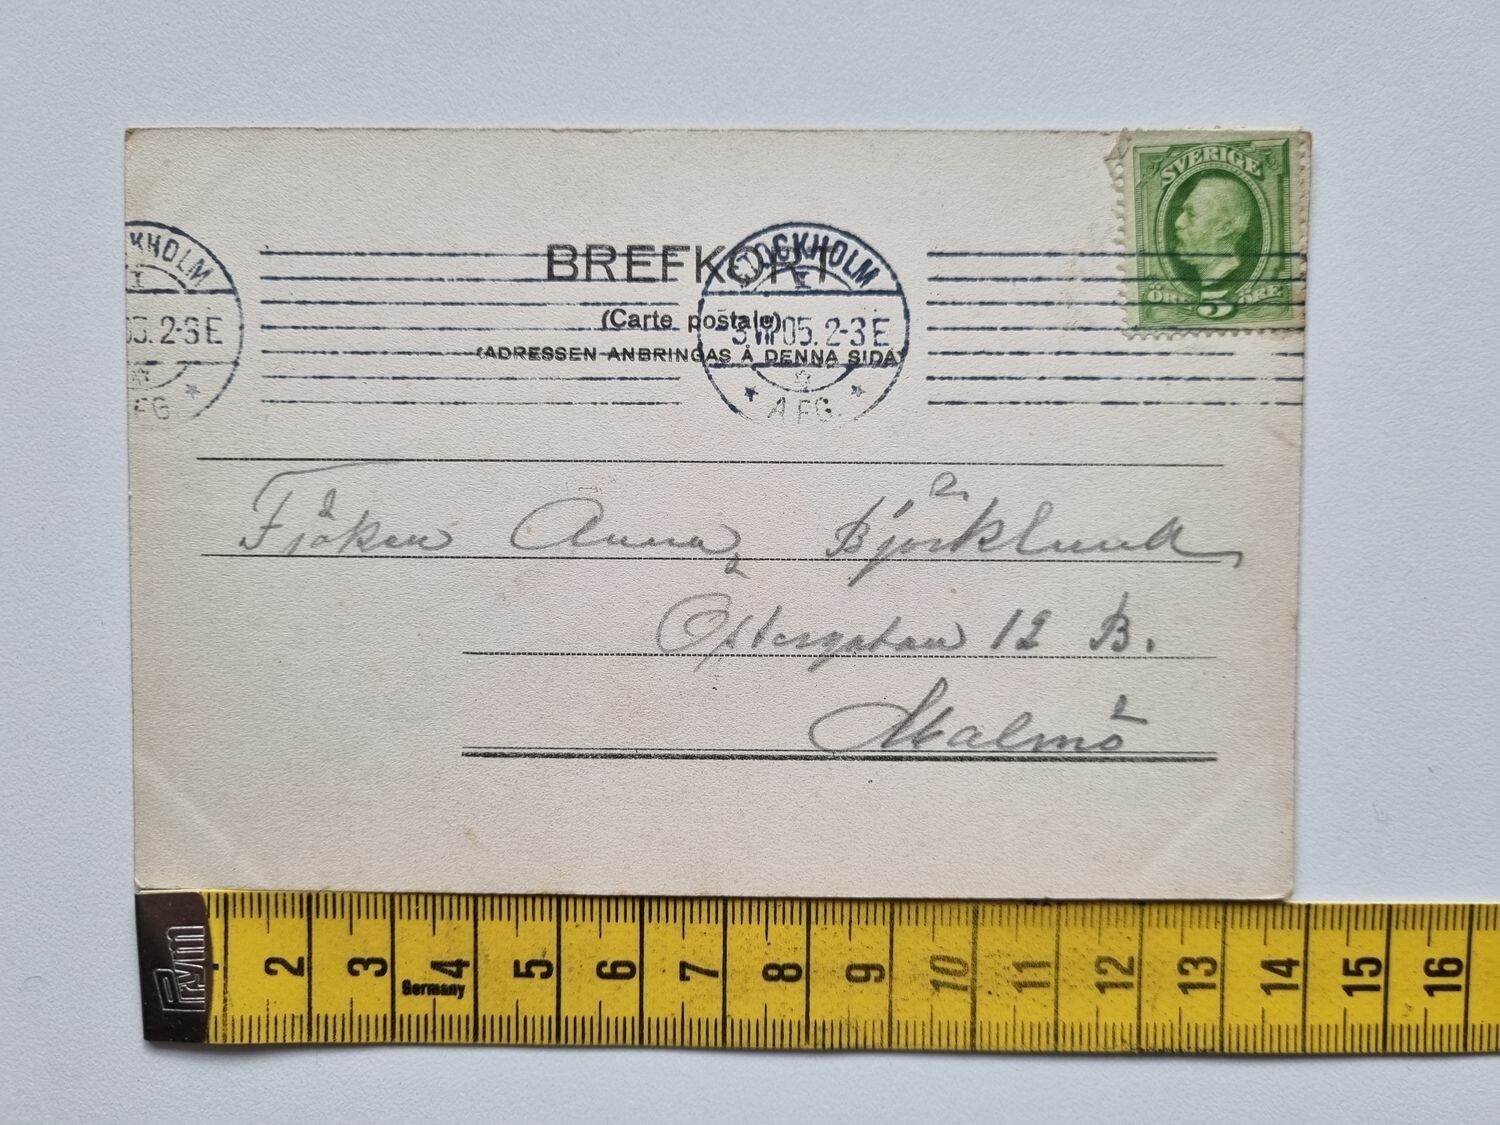 SVERIGE
ÖRE 5 ÖRE
BREFKORT
(Carte postale)
(ADRESSEN ANBRINGAS Å DENNA SIDA)
KHOLM
1
05. 2-3 E
FG
STOCKHOLM
1
3 VII 05. 2-3 E
AFG.
Fröken Anna Björklund
Östergatan 12 B.
Malmö
Prym
1 2 3 4 5 6 7 8 9 10 11 12 13 14 15 16
Germany